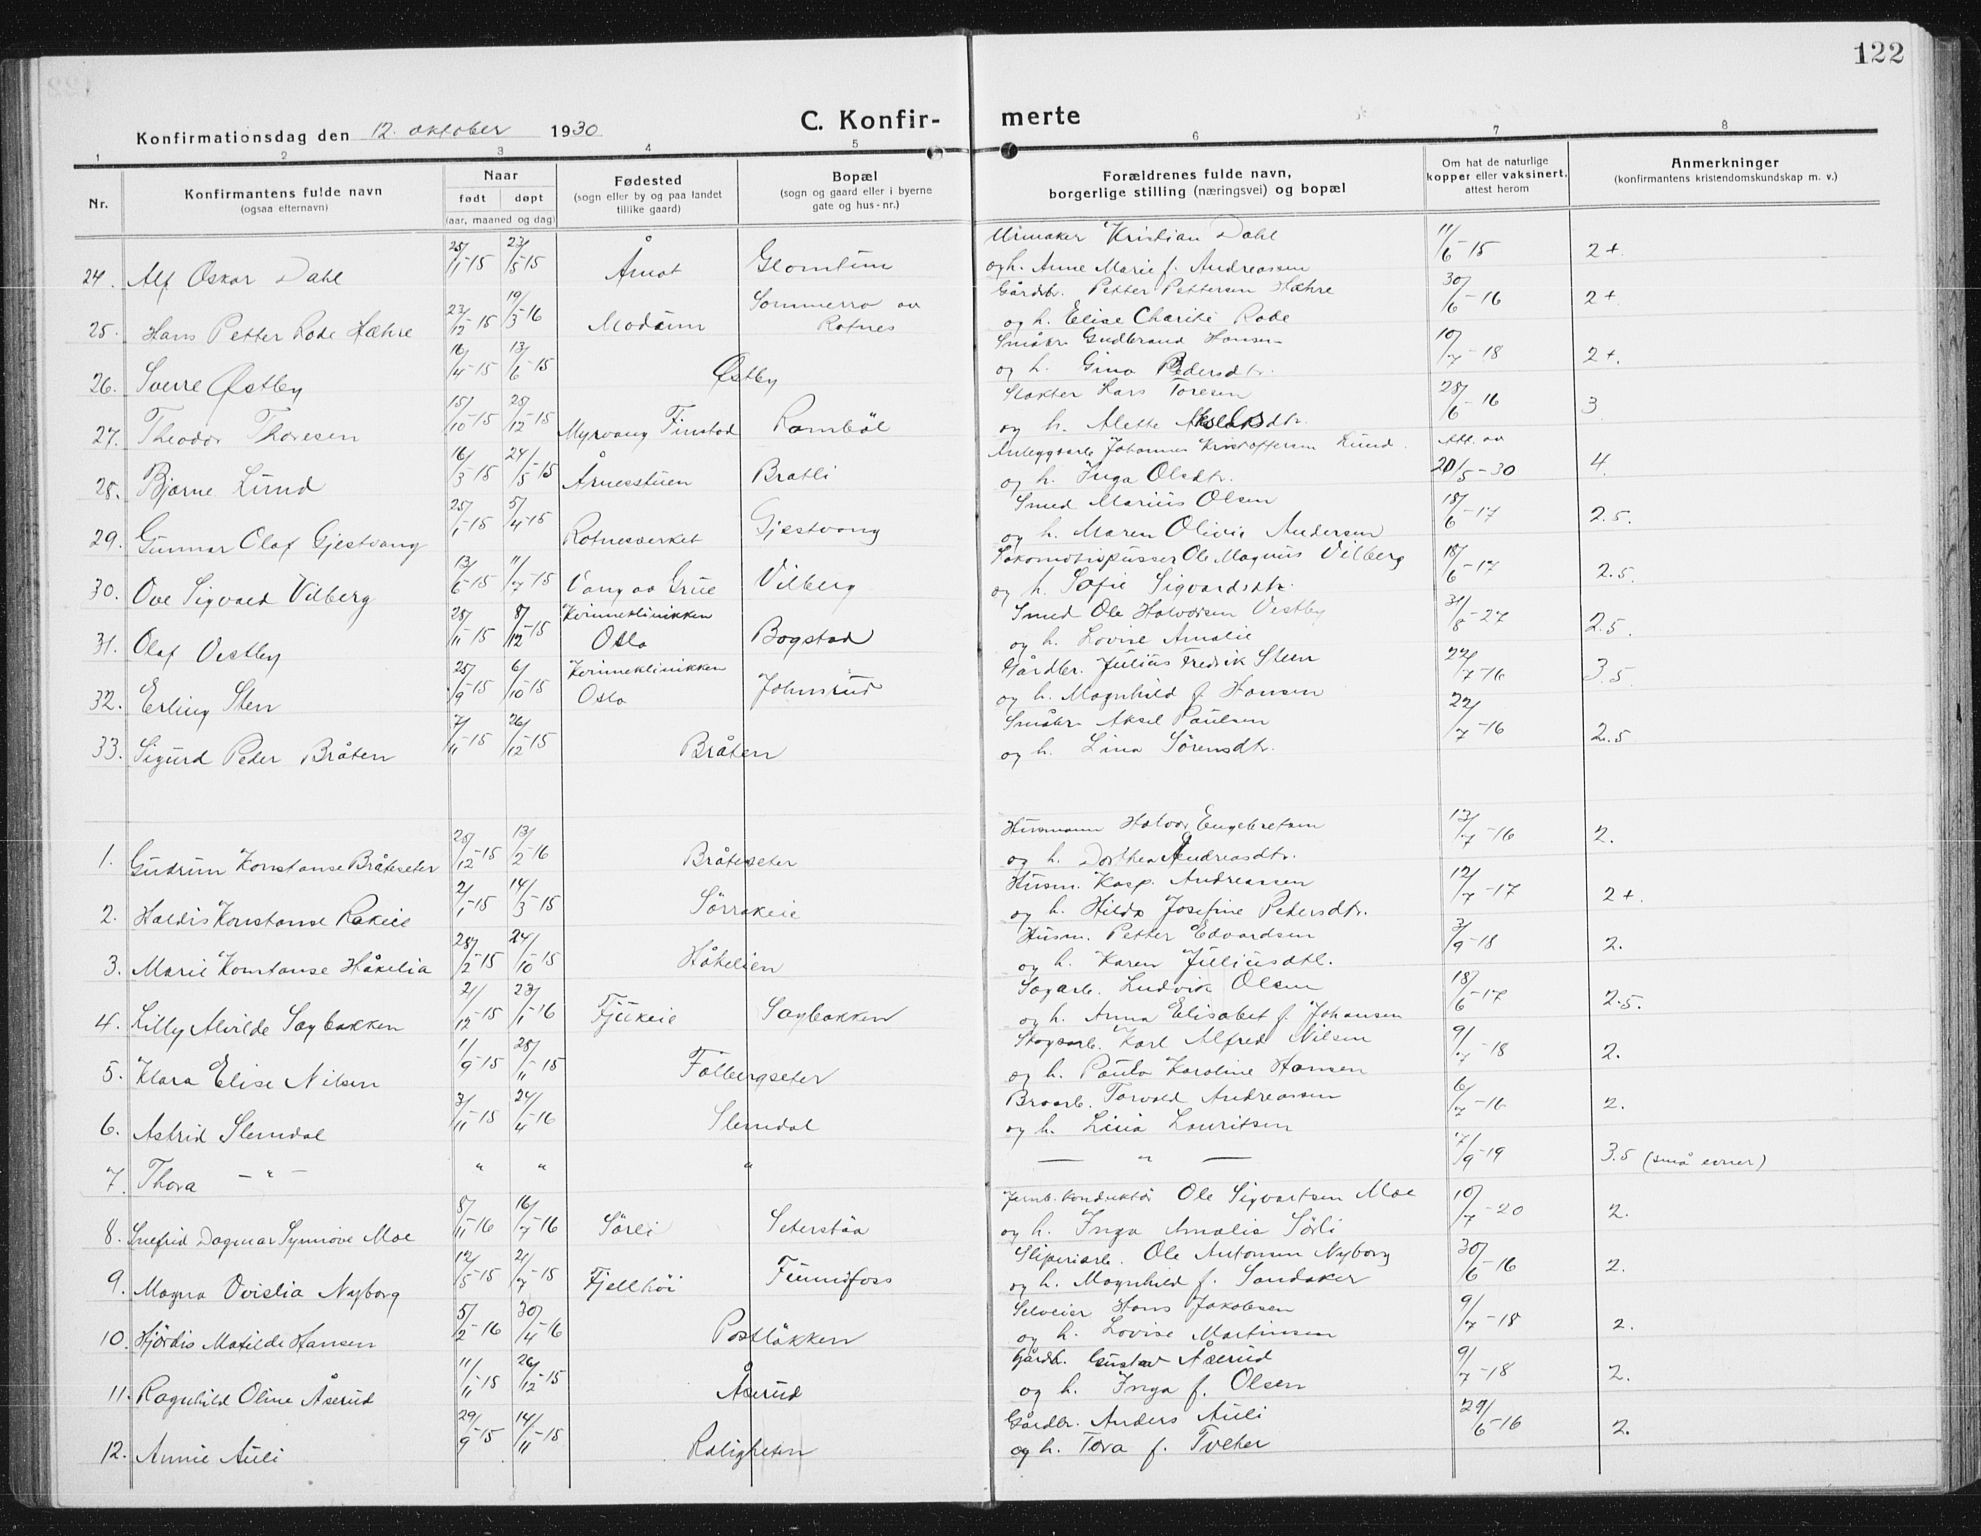 122
C. Konfir- merte
Konfirmationsdag den 12. oktober 1930
1 2 3 4 5 6 7 8
Nr.
Konfirmantens fulde navn
(ogsaa efternavn)
Naar
født døpt
(aar, maaned og dag)
Fødested
(sogn eller by og paa landet
tillike gaard)
Bopæl
(sogn og gaard eller i byerne
gate og hus-nr.)
Forældrenes fulde navn,
borgerlige stilling (næringsvei) og bopæl
Om hat de naturlige
kopper eller vaksinert,
attest herom
Anmerkninger
(konfirmantens kristendomskundskap m. v.)
Urmaker Kristian Dahl
24. Alf Oskar Dahl 25/1-15 23/5-15 Åmot Glomtun og h. Anne Marie f. Andreassen 11/6-15 2+
Gårdbr. Petter Pettersen Hæhre
25. Hans Petter Rode Hæhre 23/12-15 19/3-16 Modum Sommerro av Rotnes og h. Elise Charite Rode 30/6-16 2+.
Småbr. Gudbrand Hansen
26. Sverre Østby 16/4-15 13/6-15 Østby og h. Gina Pedersdtr. 10/7-18 2+.
Slakter Lars Toresen
27. Theodor Thoresen 15/10-15 25/12-15 Myrvang Finstad Rambøl og h. Alette 28/6-16 3
Anleggsarb. Johannes Kristoffersen Lund.
28. Bjarne Lund 16/3-15 24/5-15 Årnesstuen Bratli og h. Inga Olsdtr. Att. av 20/5-30 4.
Smed Marius Olsen
29. Gunnar Olaf Gjestvang 25/1-15 5/4-15 Rotnesverket Gjestvang og h. Maren Olivie Andersen 18/6-17 2.5.
Lokomotivpusser Ole Magnus Vilberg
30. Ove Sigvald Vilberg 13/6-15 11/7-15 Vang av Grue Vilberg og h. Sofie Sigvardsdtr. 18/6-17 2.5.
Smed Ole Halvorsen Vestby
31. Olaf Vestby 28/11-15 8/12-15 Kvinneklinikken Oslo Bogstad og h. Lovise Amalie 31/8-27 2.5.
Gårdbr. Julius Fredrik Steen
32. Erling Sten 25/9-15 6/10-15 Kvinneklinikken Oslo Johnsrud og h. Magnhild f. Hansen 22/7-16 3.5
Småbr. Aksel Paulsen
33. Sigurd Peder Bråten 7/11-15 26/12-15 Bråten og h. Lina Sørensdtr. 22/7-16 2.5
Husmann Halvor Engebretsen
1. Gudrun Konstanse Bråteseter 25/12-15 13/2-16 Bråteseter og h. Dorthea Andreasdtr. 13/7-16 2.
Husm. Kasp. Andreassen
2. Haldis Konstanse Rakeie 2/1-15 14/3-15 Sörrakeie og h. Hilda Josefine Pedersdtr. 12/7-17 2+.
Husm. Petter Edvardsen
3. Marie Konstanse Håkilia 28/2-15 24/10-15 Håkelien og h. Karen Juliusdtl. 3/9-18 2.
Sagarb. Ludvik Olsen
4. Lilly Alvilde Sagbakken 21/12-15 23/1-16 Fjukeie Sagbakken og h. Anna Elisabet f. Johansen 18/6-17 2.5.
Skogsarb. Karl Alfred Nilsen
5. Klara Elise Nilsen 1/9-15 28/11-15 Falbergseter og h. Paula Karoline Hansen 9/7-18 2.
Broarb. Torvald Andreassen
6. Astrid Slemdal 3/11-15 24/4-16 Slemdal og h. Lina Lauritsen 6/7-16 2.
7. Thora — " — " " " — " — 7/9-19 3.5 (små evner)
Jernb. konduktør Ole Sigvartsen Moe
8. Snefrid Dagmar Synnöve Moe 8/11-16 16/7-16 Sörli Seterstöa og h. Inga Amalia Sörli 10/7-20 2.
Sliperiarb. Ole Antonsen Nyborg
9. Magna Ovislia Nyborg 12/5-15 21/7-15 Fjellhöi Funnefoss og h. Magnhild f. Sandaker 30/6-16 2.
Selveier Hans Jakobsen
10. Hjördis Matilde Hansen 5/2-16 30/4-16 Postløkken og h. Lovise Martinsen 9/7-18 2.
Gårdb. Gustav Åserud
11. Ragnhild Oline Åserud 11/11-15 26/12-15 Åserud og h. Inga f. Olsen 9/7-18 2.
Gårdbr. Anders Auli
12. Annie Auli 29/9-15 14/11-15 Roligheten og h. Tora f. Tveter 29/6-16 2.